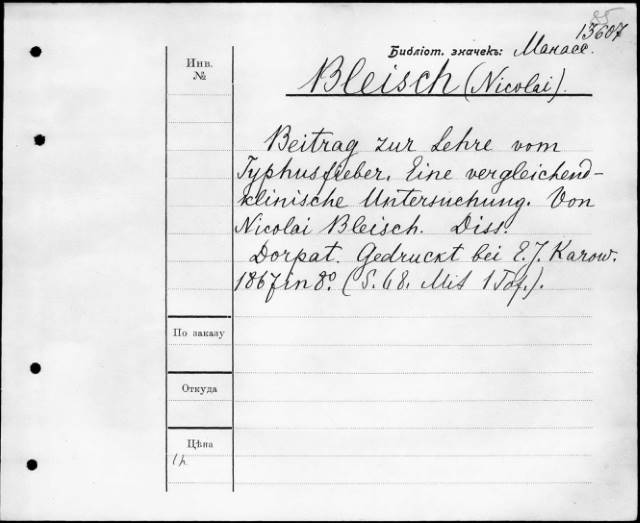 13607
Библіот. значекъ: Манасс.
Bleisch (Nicolai).
Инв.
№
Beitrag zur Lehre vom
Typhusfieber. Eine vergleichend-
klinische Untersuchung. Von
Nicolai Bleisch. Diss.
Dorpat. Gedruckt bei E. J. Karow.
1867 in 8º. (S. 68. Mit 1 Taf.).
По заказу
Откуда
Цѣна
1 р.